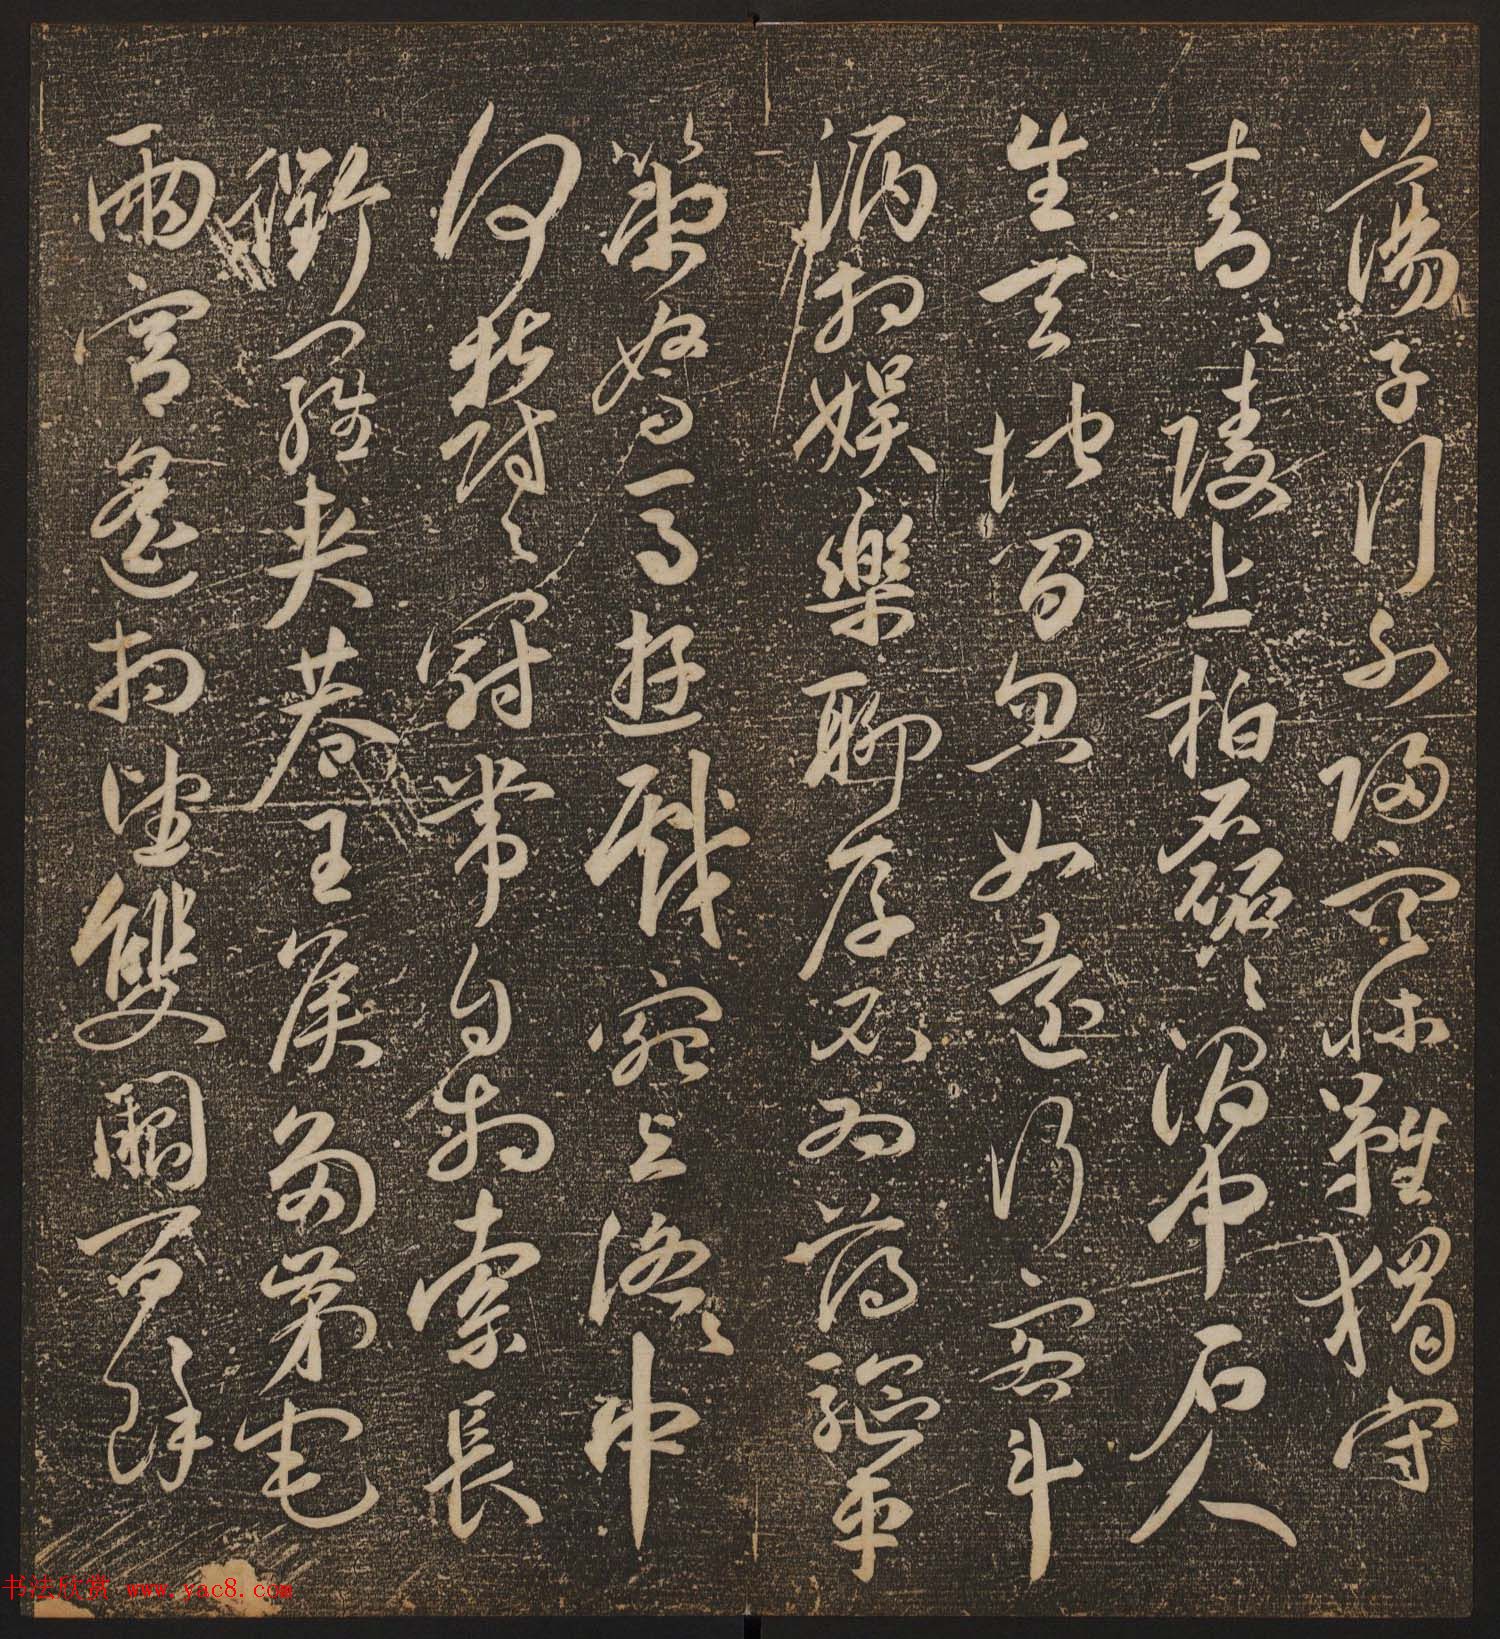 蕩子行不歸空床難獨守
青〻陵上柏磊〻澗中石人
生天地間忽如遠行客斗
酒相娛樂聊厚不為薄驅車
策駑馬遊戲宛与洛〻中
何鬱〻冠帶自相索長
衢羅夾巷王侯多第宅
兩宮遙相望雙闕百餘
书法欣赏 www.yac8.com